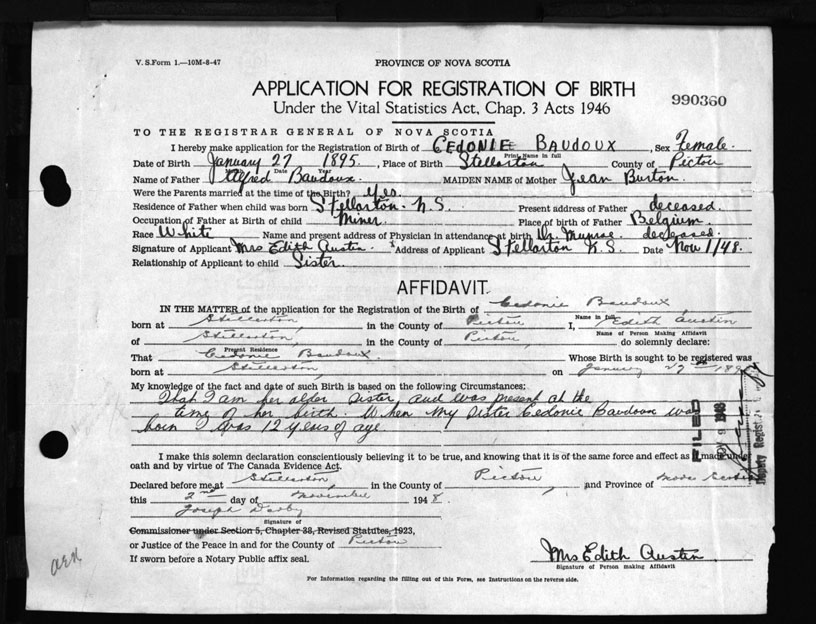 V. S. Form 1.—10M-8-47
PROVINCE OF NOVA SCOTIA
APPLICATION FOR REGISTRATION OF BIRTH
990360
Under the Vital Statistics Act, Chap. 3 Acts 1946
TO THE REGISTRAR GENERAL OF NOVA SCOTIA
I hereby make application for the Registration of Birth of CEDONIE BAUDOUX, Sex Female.
Print Name in full
Date of Birth January 27 1895, Place of Birth Stellarton County of Pictou
Date Year
Name of Father Alfred Baudoux. MAIDEN NAME of Mother Jean Burton.
Were the Parents married at the time of the Birth? Yes.
Residence of Father when child was born Stellarton. N.S. Present address of Father deceased.
Occupation of Father at Birth of child Miner Place of birth of Father Belgium.
Race White Name and present address of Physician in attendance at birth Dr. Munroe. deceased.
Signature of Applicant Mrs Edith Austin. Address of Applicant Stellarton N.S. Date Nov 1/48.
Relationship of Applicant to child Sister.
AFFIDAVIT.
IN THE MATTER of the application for the Registration of the Birth of Cedonie Baudoux
Name in full
born at Stellarton, in the County of Pictou I, Edith Austin
Name of Person Making Affidavit
of Stellarton, in the County of Pictou, do solemnly declare:
Present Residence
That Cedonie Baudoux. Whose Birth is sought to be registered was
born at Stellarton on January 27 189
My knowledge of the fact and date of such Birth is based on the following Circumstances:
That I am her older sister, and was present at the
time of her birth. When my sister Cedonie Baudoux was
born I was 12 years of age
FILED
NOV 9 1948
Deputy Registr
I make this solemn declaration conscientiously believing it to be true, and knowing that it is of the same force and effect as if made under
oath and by virtue of The Canada Evidence Act.
Declared before me at Stellarton, in the County of Pictou, and Province of Nova Scotia
this 2nd day of November 1948.
Joseph Darby
Signature of
Commissioner under Section 5, Chapter 38, Revised Statutes, 1923,
or Justice of the Peace in and for the County of Pictou
If sworn before a Notary Public affix seal.
Mrs Edith Austin
Signature of Person making Affidavit
For Information regarding the filling out of this Form, see Instructions on the reverse side.